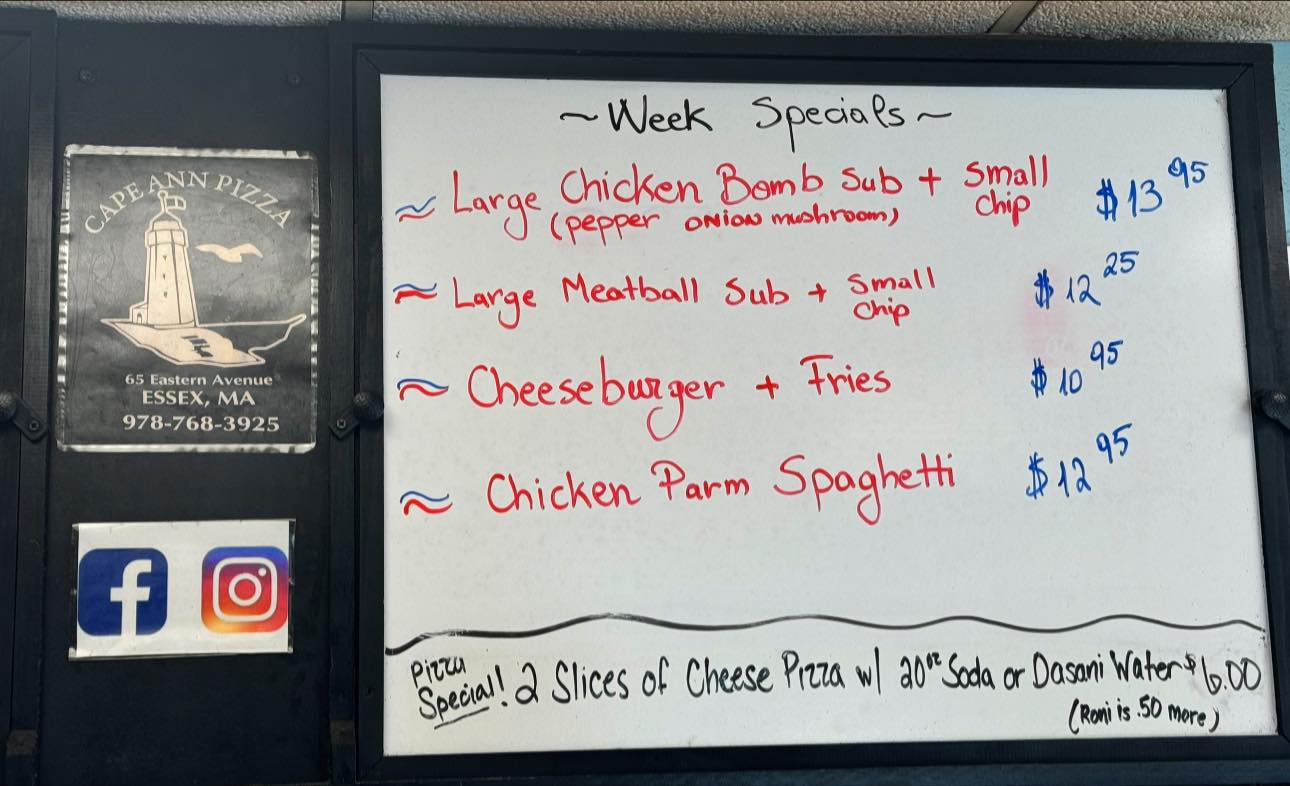 CAPE ANN PIZZA
65 Eastern Avenue
ESSEX, MA
978-768-3925
~Week Specials~
≈ Large Chicken Bomb Sub + Small chip $13 95
(pepper onion mushroom)
≈ Large Meatball Sub + Small chip $12 25
≈ Cheeseburger + Fries $10 95
≈ Chicken Parm Spaghetti $12 95
Pizza Special! 2 Slices of Cheese Pizza w/ 20oz Soda or Dasani Water $6.00
(Roni is .50 more)